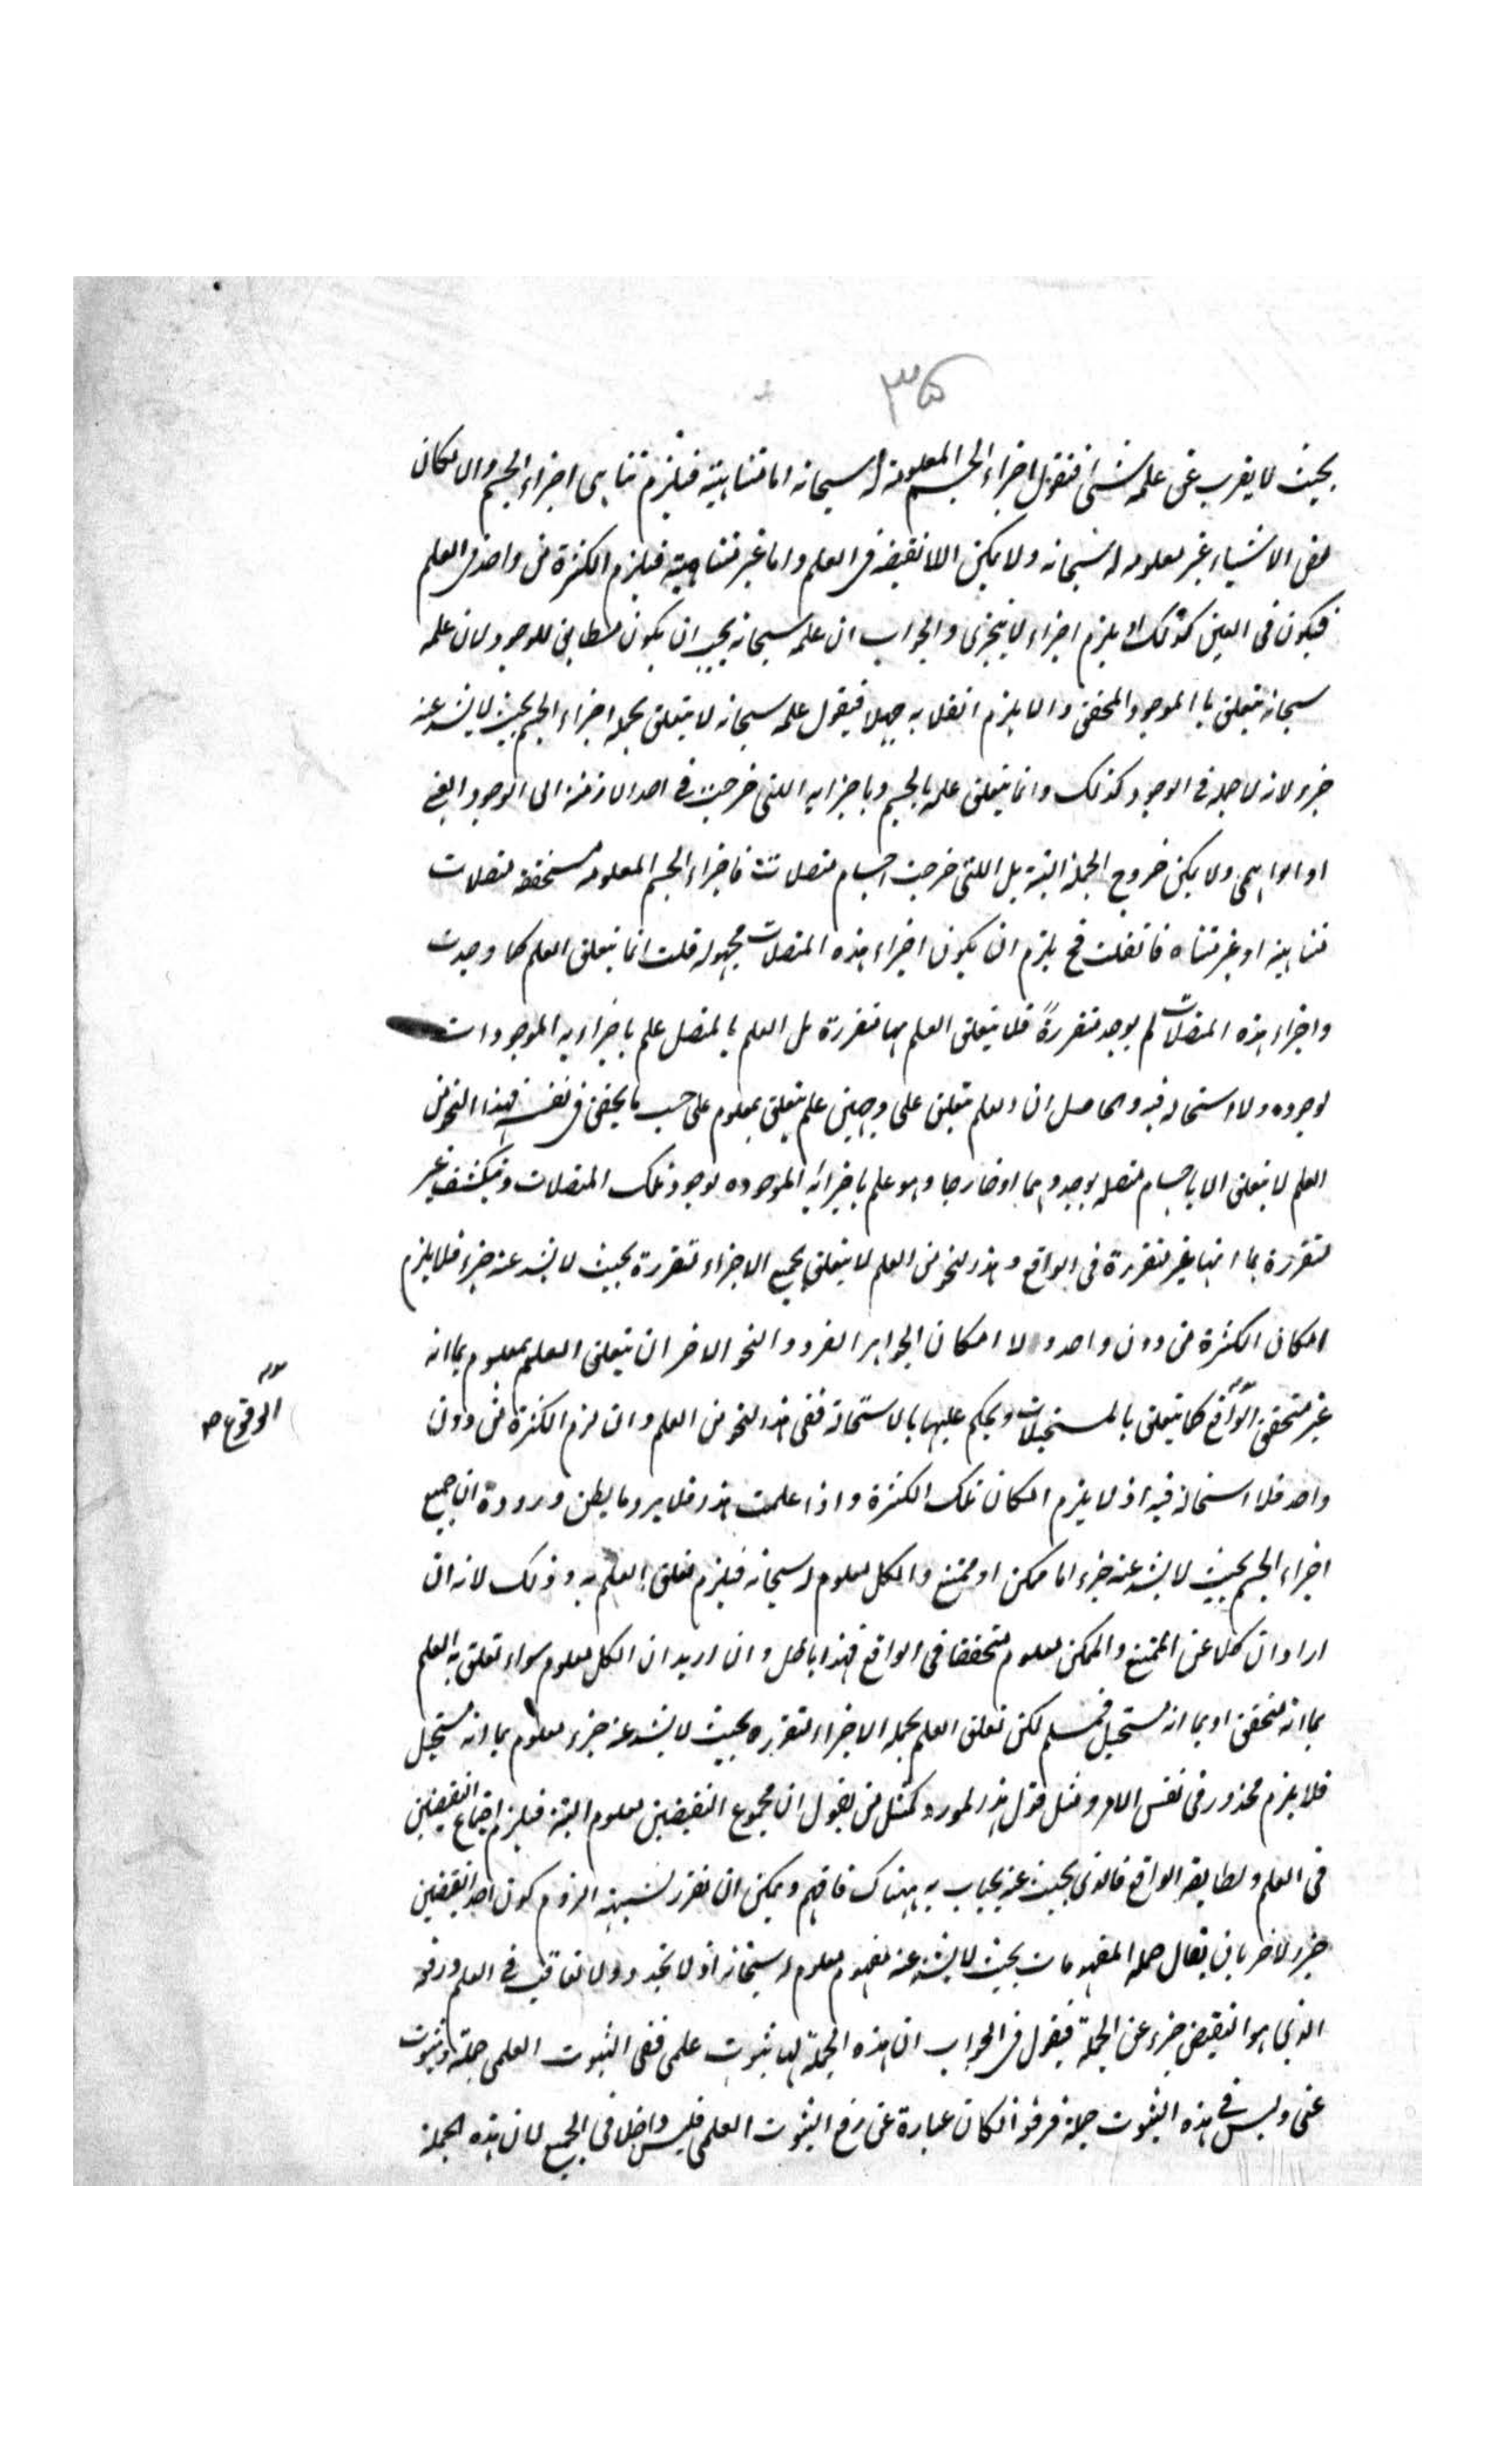 ٣٥
بحيث لا يعزب عن علمه شئ فنقول اجزاء الجسم المعلومة له سبحانه اما متناهية فيلزم تناهى اجزاء الجسم والا لكان
بعض الاشياء غير معلومه له سبحانه ولا يمكن اللانقيضه فى العلم واما غير متناهية فيلزم الكثرة من واحد فى العلم
فيكون فى العين كذلك او يلزم اجزاء لا يتجزى والجواب ان علمه سبحانه يجب ان يكون مطابق للوجود لان علمه
سبحانه متعلق با الموجود المحقق والا يلزم انقلابه جهلا فيقول علمه سبحانه لا يتعلق بجمله اجزاء الجسم بحيث لا يشذ عنه
جزء لانه لا جملة فى الوجود كذلك وانما يتعلق علمه بالجسم وباجزايه اللتى خرجت فى احد الازمنه الى الوجود العينى
او الواهمى ولا يمكن خروج الجملة البتة بل اللتى خرجت اجسام متصلات فاجزاء الجسم المعلومه متحققه متصلات
متناهية او غير متناه فان قلت فح يلزم ان يكون اجزاء هذه المتصلات مجهوله قلت انما يتعلق العلم كما وجدت
واجزاء هذه المتصلات لم يوجد متقررةً فلا يتعلق العلم بها متقررة بل العلم بالمتصل علم باجزايه الموجودات
لوجوده ولا استحاله فيه والحاصل ان العلم متعلق على وجهين علم يتعلق بمعلوم على حسب ما يحقق فى نفسه فهذا النحو من
العلم لا يتعلق الا باجسام متصله يوجد وهما او خارجا وهو علم باجزائه الموجوده لوجود تلك المتصلات وينكشف غير
متقررة بما انها غير متقررة فى الواقع وهذا النحو من العلم لا يتعلق بجميع الاجزاء متقررة بحيث لا يشذ عنه جزء فلا يلزم
امكان الكثرة من دون واحد ولا امكان الجواهر الفرد والنحو الاخر ان يتعلق العلم بمعلوم بما انه
غير متحقق الواقع كما يتعلق بالمستحيلات ويحكم عليها بالاستحالة ففى هذا النحو من العلم وان لزم الكثرة من دون
الوقوع صح
واحد فلا استحالة فيه اذ لا يلزم امكان تلك الكثرة واذا علمت هذا فلا يرد ما يظن وروده ان جميع
اجزاء الجسم بحيث لا يشذ عنه جزء اما ممكن او ممتنع والكل معلوم له سبحانه فيلزم تعلق العلم به وذلك لانه ان
اراد ان كلا من الممتنع والممكن معلوم متحققا فى الواقع فهذا باطل وان اريد ان الكل معلوم سواء تعلق به العلم
بما انه متحقق او بما انه مستحيل فمسلم لكن تعلق العلم بجمله الاجزاء المتقرره بحيث لا يشذ عنه جزء معلوم بما انه مستحيل
فلا يلزم محذور فى نفس الامر ومثل قول هذا المورد كمثل من يقول ان مجموع النقيضين معلوم البتة فيلزم اجتماع النقيضين
فى العلم ولطابقه الواقع فالذى بحيث عنه يجاب به هناك فافهم ويمكن ان نقرر شبهة الزوم كون احد النقيضين
جزء لاخر بان يقال جمله المفهومات بحيث لا يشذ عنه مفهوم معلوم له سبحانه اذ لا تجدد ولا تعاقب فى العلم ورفعه
الذى هو النقيض جزء عن الجملة فيقول فى الجواب ان هذه الجملة لها ثبوت علمى ففى الثبوت العلمى جملة وثبوت
عنى وليس فى هذه الثبوت جملة فرفعه انكان عبارة عن رفع الثبوت العلمى فليس داخلا فى الجميع لان هذه الجملة